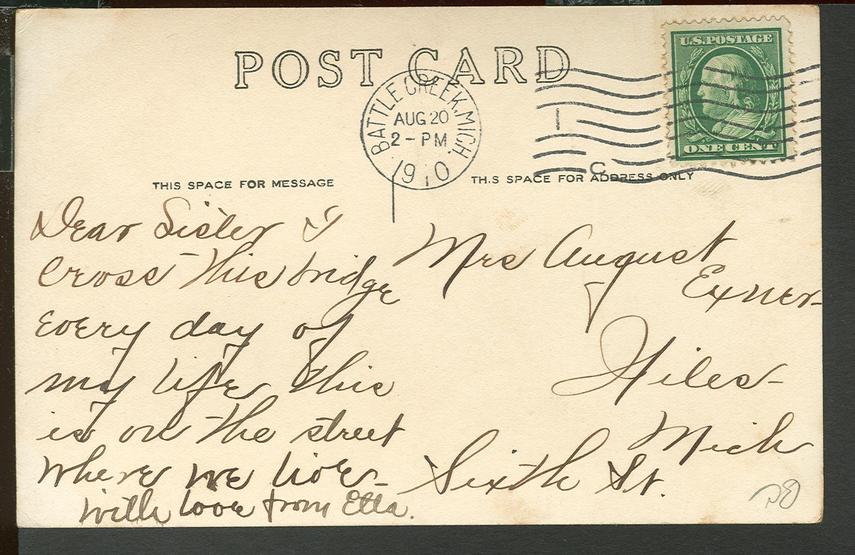 POST CARD
BATTLE CREEK, MICH
AUG 20
2 - PM
1910
U.S. POSTAGE
ONE CENT
THIS SPACE FOR MESSAGE
THIS SPACE FOR ADDRESS ONLY
C
Dear Sister I
cross this bridge
every day of
my life this
is on the street
where we live -
with love from Etta.
Mrs August
Exner -
Niles -
Mich
Sixth St.